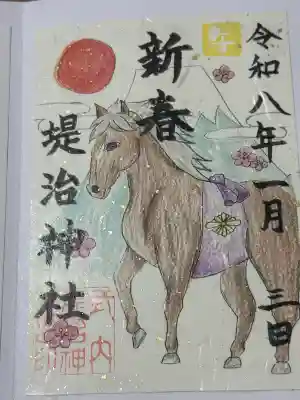 令和八年一月三日
午
新春
堤治神社
式内